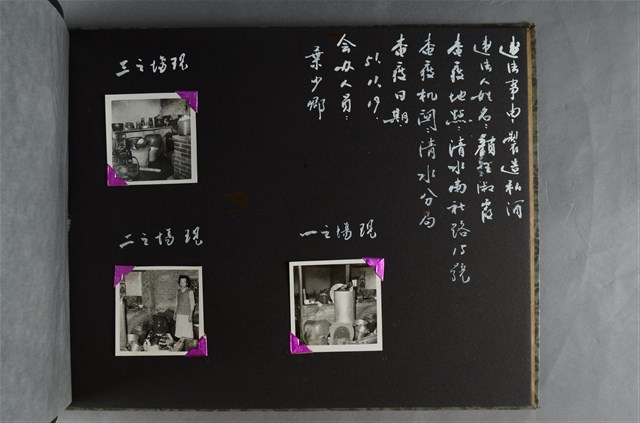 違法事由：製造私酒
違法人姓名：淑霞
查獲地點：清水南社路15號
查獲机関：清水分局
查獲日期：
51.11.19.
会办人員：
葉少卿
現場之一
現場之二
現場之三